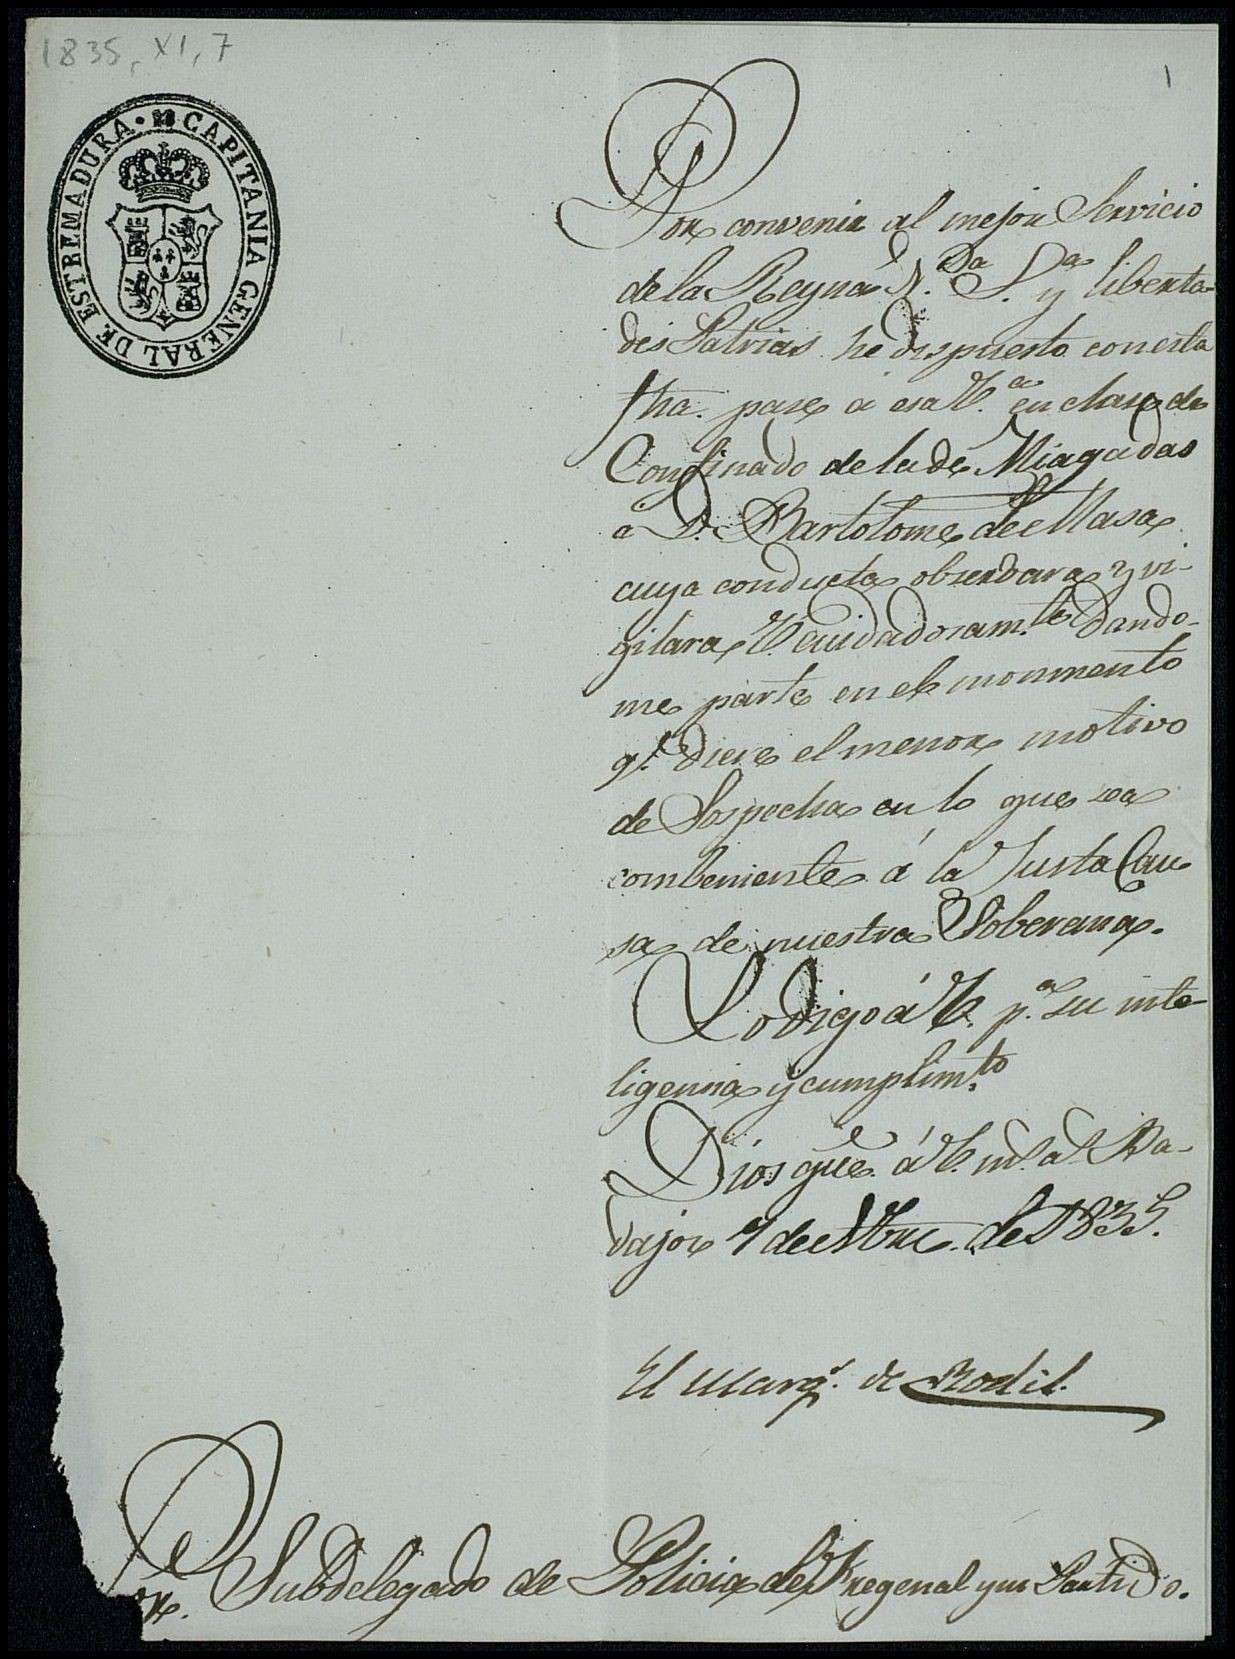 1835, XI, 7
1
CAPITANIA GENERAL DE ESTREMADURA
Por convenir al mejor Servicio
de la Reyna N.ª S.ª y liberta-
des Patrias he dispuesto con esta
fha. pase á esa V.ª en clase de
Confinado de la de Miagadas
á D. Bartolome de Masa
cuya conducta observara y vi-
gilara V. cuidadosam.te dando-
me parte en el monmento
q.e diere el menor motivo
de Sospecha en lo que sea
combeniente á la Justa Cau
sa de nuestra Soberana.
Lo digo á V. p.ª su inte-
ligencia y cumplim.to
Dios gue. á V. m.s a.s Ba-
dajoz 7 de Nbre. de 1835.
El Marq.s de Rodil.
Sor. Subdelegado de Policia de Fregenal y su Partido.